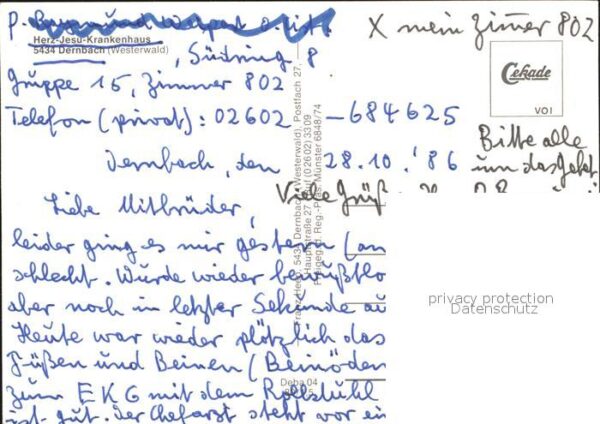 P.
X mein Zimmer 802
Herz-Jesu-Krankenhaus
5434 Dernbach (Westerwald)
, Südring 8
Gruppe 15, Zimmer 802
Telefon (privat): 02602 – 684625
Cekade
VOI
Dernbach, den 28.10.'86
Bitte alle
um das Gebet.
Viele Grüß
Liebe Mitbrüder,
leider ging es mir gestern (an
schlecht. Wurde wieder bewußtlo
aber noch in letzter Sekunde au
Heute war wieder plötzlich das
Füßen und Beinen (Beinöden
zum EKG mit dem Rollstuhl
ist gut. Der Chefarzt steht vor ei
5434 Dernbach (Westerwald), Postfach 27,
Hauptstraße 27, Ruf (02602) 3309
Freigegeb. Reg.-Präs. Münster 6848/74
Deba 04
privacy protection
Datenschutz